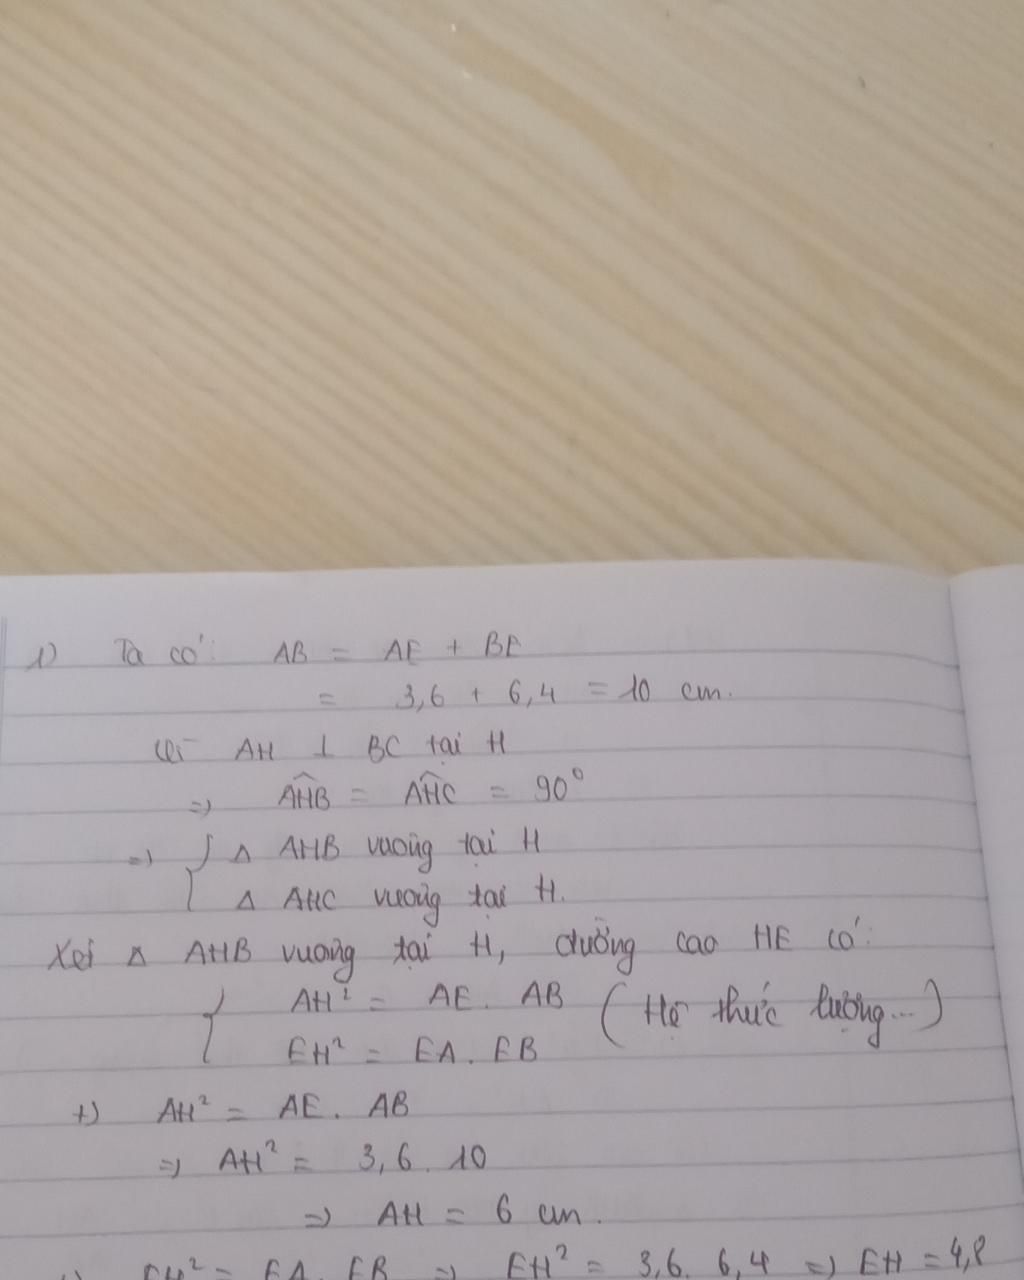 1) Ta có: AB = AE + BE
= 3,6 + 6,4 = 10 cm.
Vì AH ⊥ BC tại H
=> AHB̂ = AHĈ = 90°
=> { Δ AHB vuông tại H
Δ AHC vuông tại H.
Xét Δ AHB vuông tại H, đường cao HE có:
{ AH² = AE . AB (Hệ thức lượng...)
EH² = EA . EB
+) AH² = AE . AB
=> AH² = 3,6 . 10
=> AH = 6 cm.
+) EH² = EA . EB => EH² = 3,6 . 6,4 => EH = 4,8